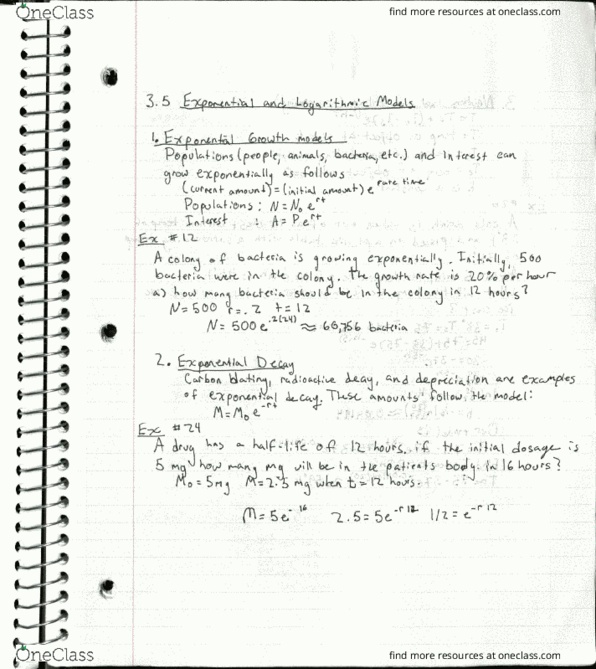 OneClass
find more resources at oneclass.com
3.5 Exponential and Logarithmic Models
1. Exponental Growth models
Populations (people, animals, bacteria, etc.) and interest can
grow exponentially as follows
(current amount) = (initial amount) e^rate time
Populations : N = N₀ e^rt
Interest : A = P e^rt
Ex #12
A colony of bacteria is growing exponentially. Initially, 500
bacteria were in the colony. The growth rate is 20% per hour
a) how many bacteria should be in the colony in 12 hours?
N = 500 r = .2 t = 12
N = 500 e^.2(24) ≈ 60,756 bacteria
2. Exponential Decay
Carbon dating, radioactive decay, and depreciation are examples
of exponential decay. These amounts follow the model:
M = M₀ e^-rt
Ex #24
A drug has a half-life of 12 hours. if the initial dosage is
5 mg how many mg will be in the patients body in 16 hours?
M₀ = 5mg M = 2.5 mg when t = 12 hours.
M = 5e^- 16 2.5 = 5e^-r 12 1/2 = e^-r 12
OneClass
find more resources at oneclass.com